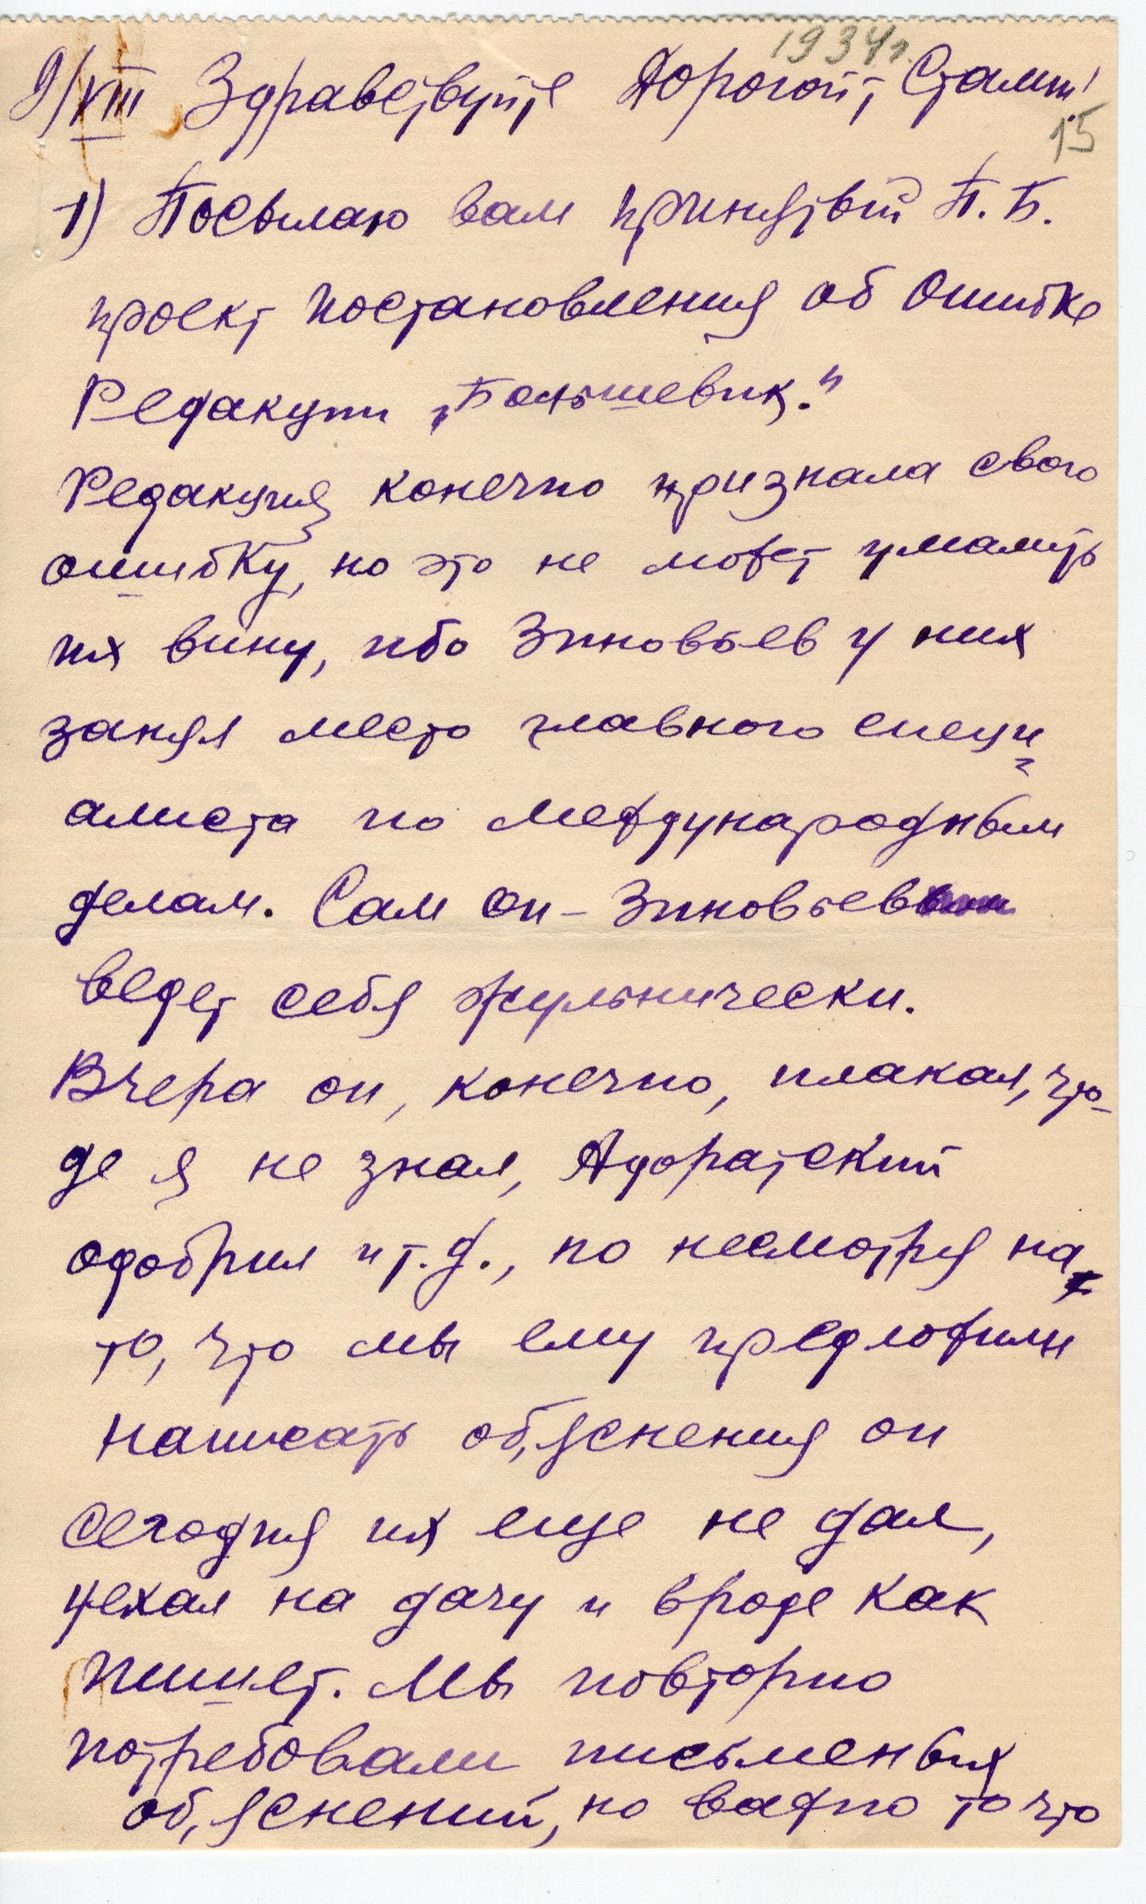 1934г.
9/VIII Здравствуйте Дорогой, Сталин!
15
1) Посылаю вам принятый П.Б.
проект постановления об ошибке
Редакции „Большевик."
Редакция конечно признала свою
ошибку, но это не может умалить
их вину, ибо Зиновьев у них
занял место главного специ
алиста по международным
делам. Сам он – Зиновьев
ведет себя жульнически.
Вчера он, конечно, плакал, что-
де я не знал, Адоратский
одобрил и т.д., но несмотря на
то, что мы ему предложили
написать об,яснения он
сегодня их еще не дал,
уехал на дачу и вроде как
пишет. Мы повторно
потребовали письменных
об,яснений, но важно то что